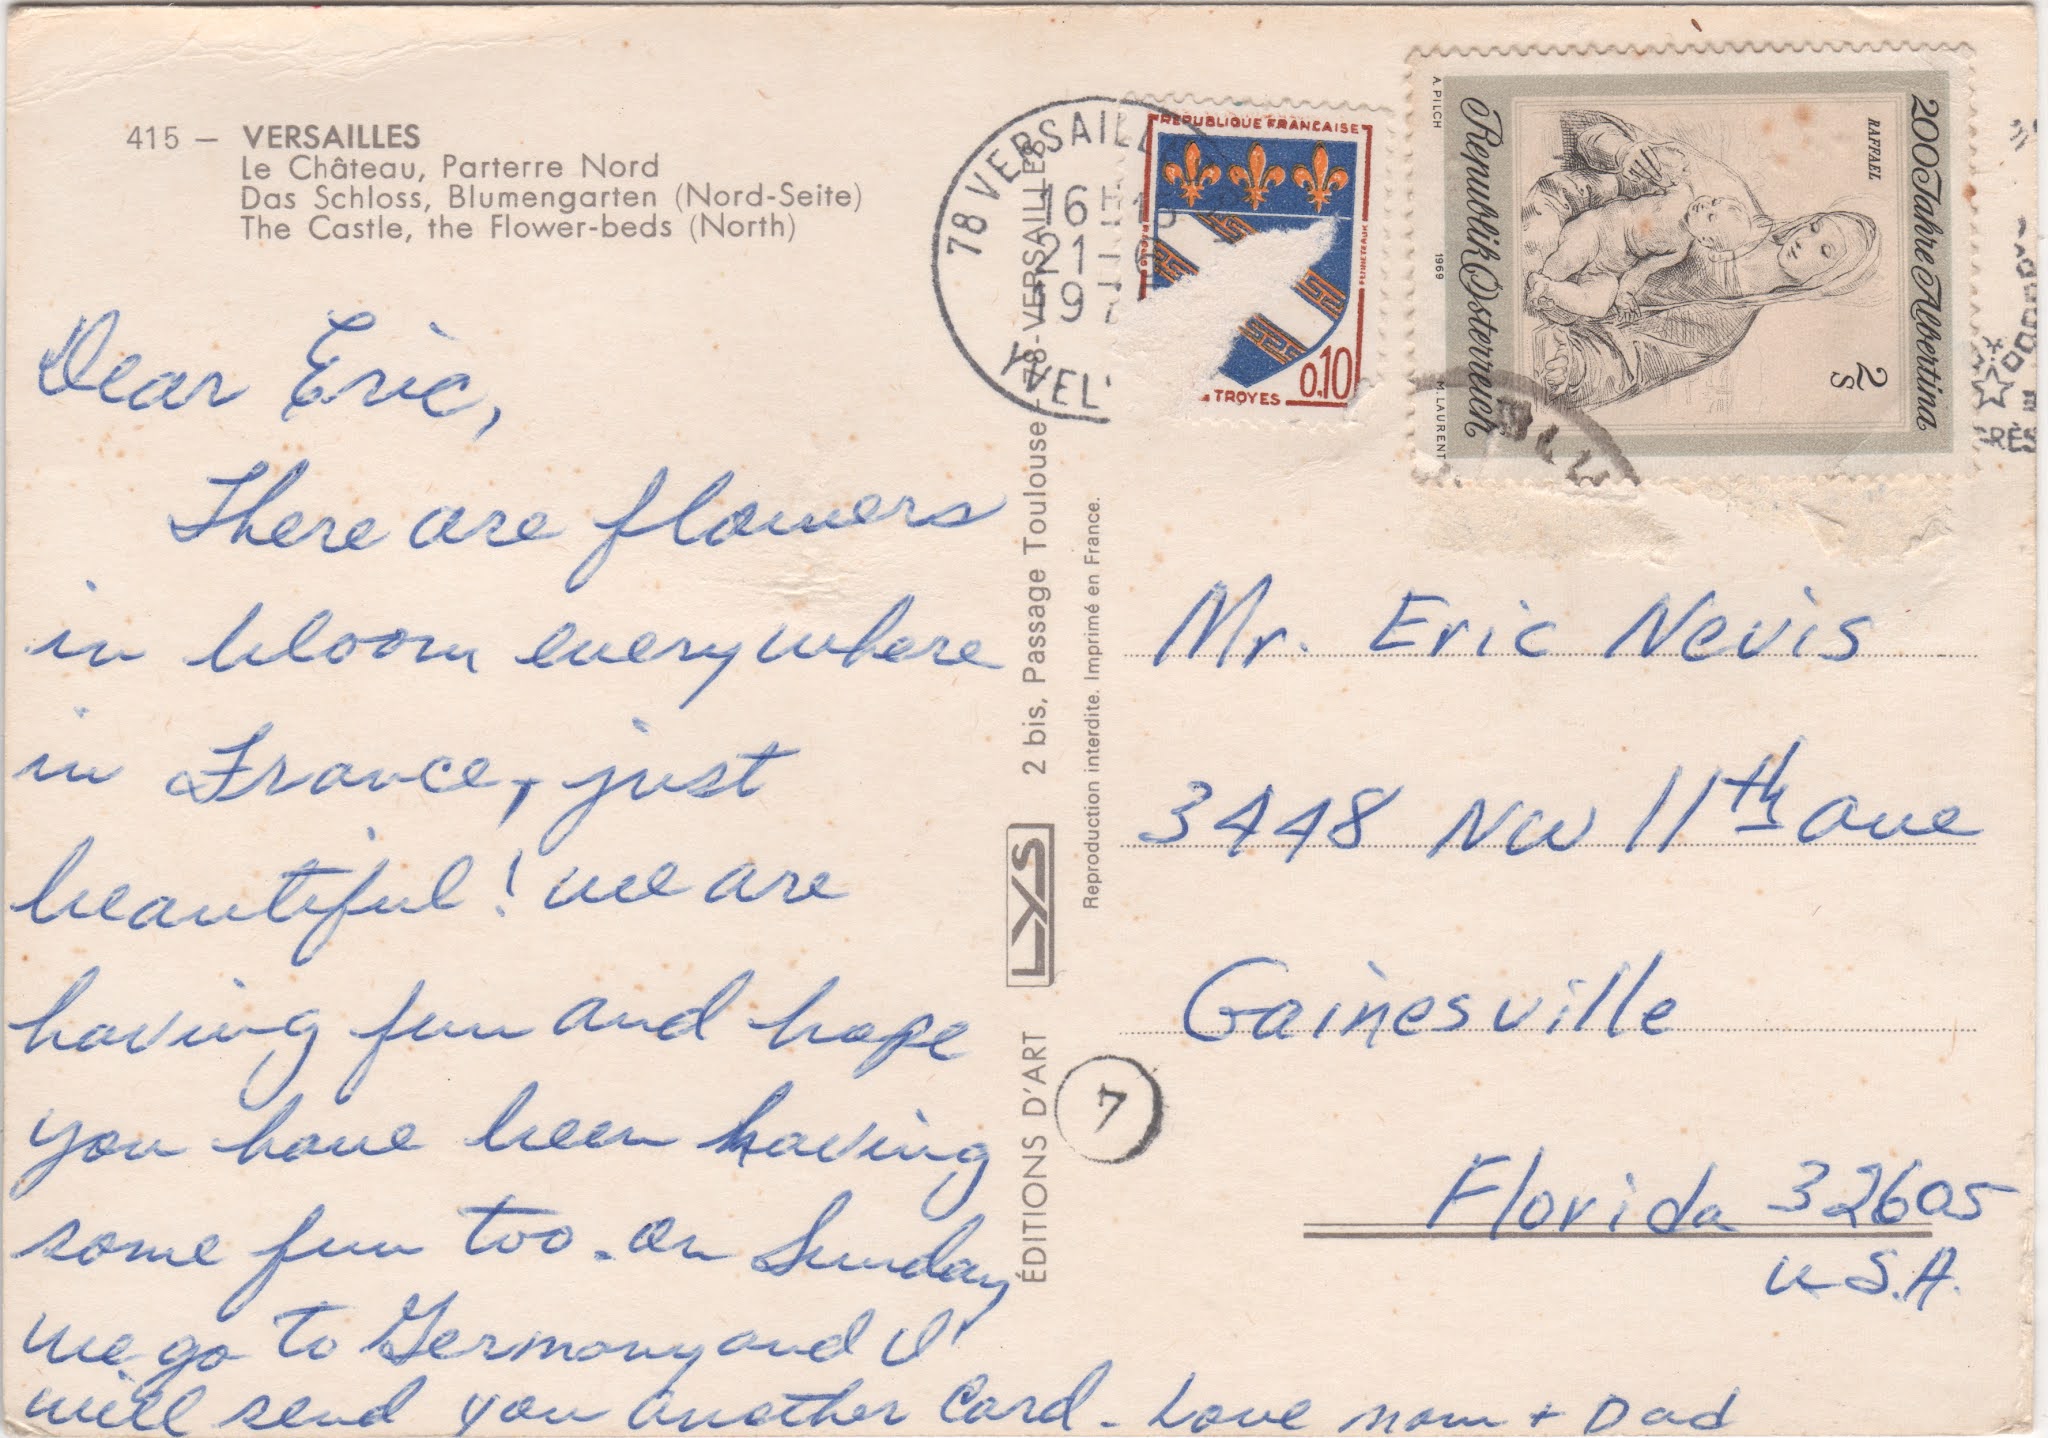 415 – VERSAILLES
Le Château, Parterre Nord
Das Schloss, Blumengarten (Nord-Seite)
The Castle, the Flower-beds (North)
Dear Eric,
There are flowers
in bloom everywhere
in France, just
beautiful! We are
having fun and hope
you have been having
some fun too. On Sunday
we go to Germany and I
will send you another card. Love Mom + Dad
ÉDITIONS D'ART LYS 2 bis, Passage Toulouse - 78-VERSAILLES
Reproduction interdite. Imprimé en France.
78 VERSAILL
16 H
21
197
YVEL
REPUBLIQUE FRANCAISE
TROYES
0,10
200 Jahre Albertina
Republik Österreich
RAFFAEL
2s
A. PILCH
1969
M. LAURENT
RÉS
7
Mr. Eric Nevis
3448 NW 11th Ave
Gainesville
Florida 32605
U.S.A.